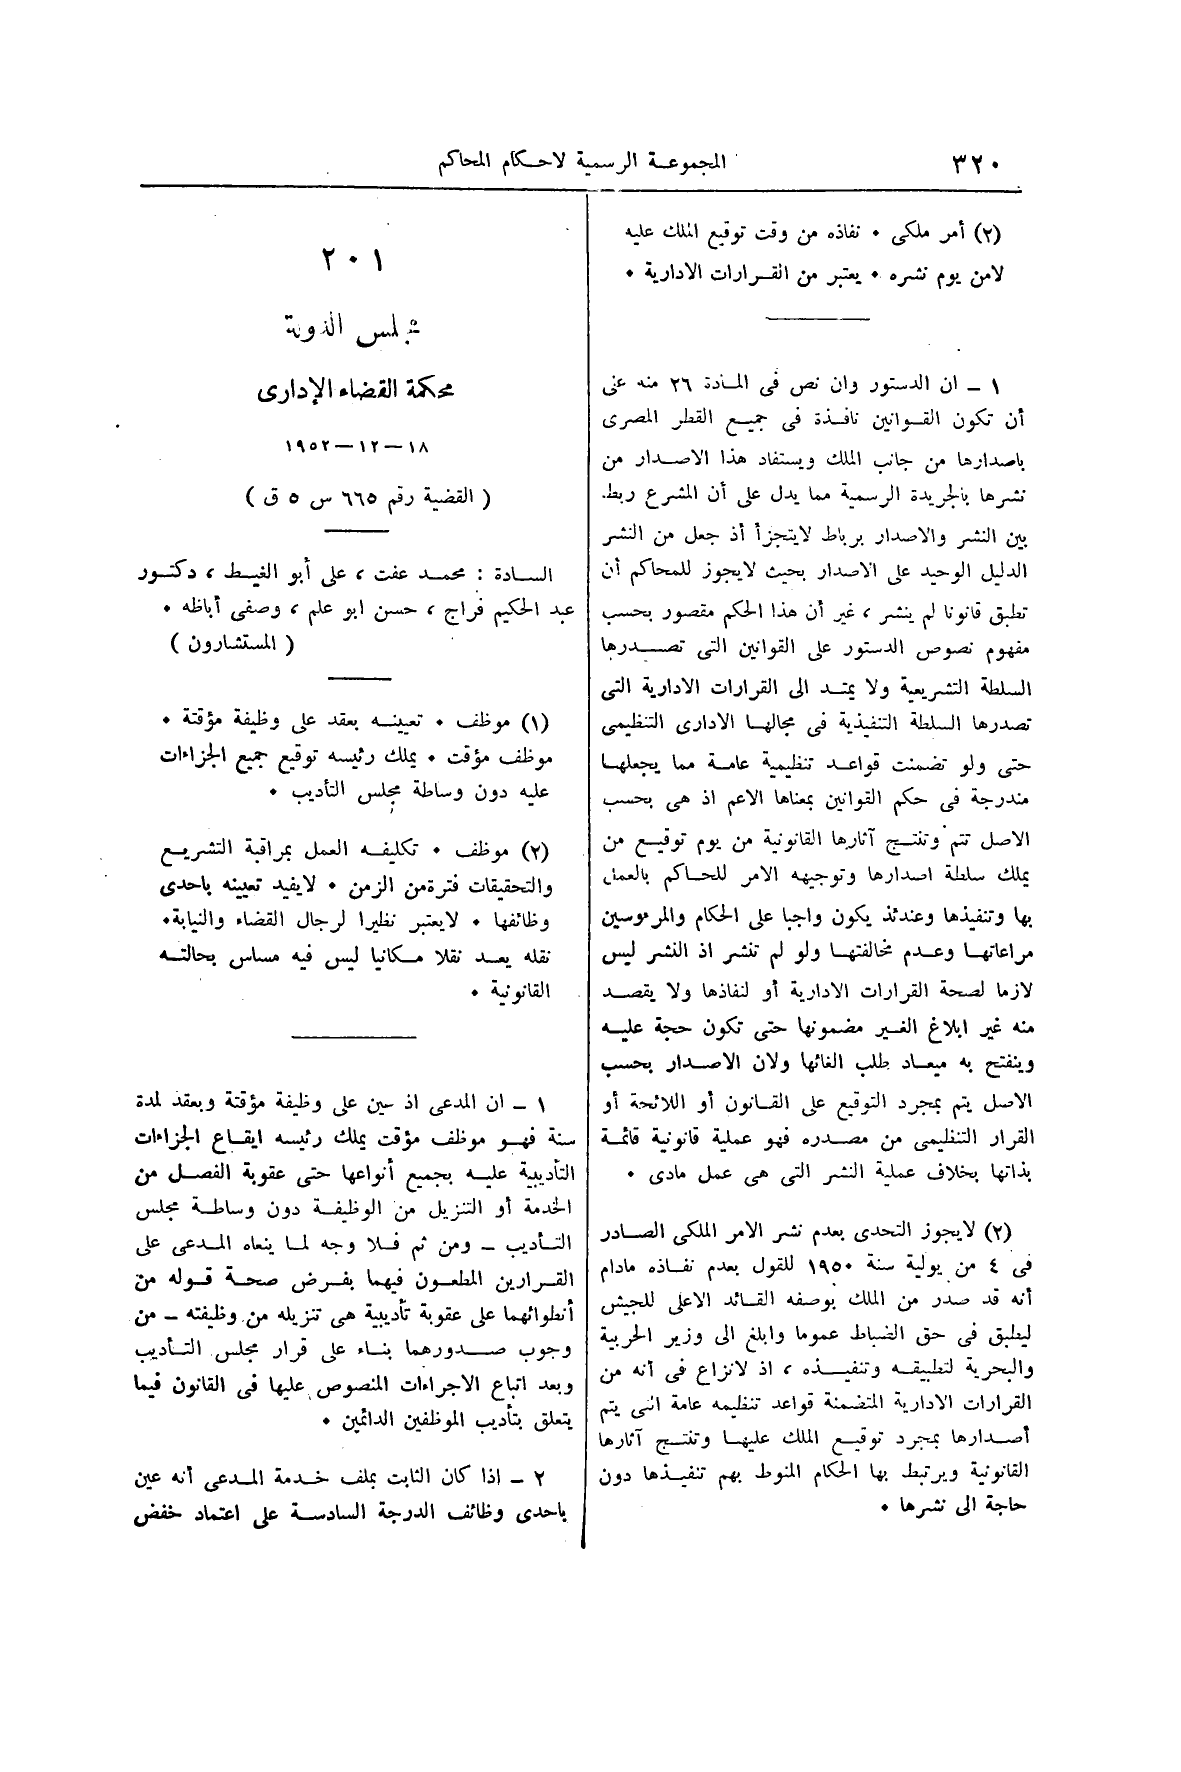 ٣٢٠ المجموعة الرسمية لاحكام المحاكم
(٢) أمر ملكى ٠ نفاذه من وقت توقيع الملك عليه
لامن يوم نشره ٠ يعتبر من القرارات الادارية ٠
١ ــ ان الدستور وان نص فى المادة ٢٦ منه على
أن تكون القوانين نافذة فى جميع القطر المصرى
باصدارها من جانب الملك ويستفاد هذا الاصدار من
نشرها بالجريدة الرسمية مما يدل على أن المشرع ربط
بين النشر والاصدار برباط لايتجزأ أذ جعل من النشر
الدليل الوحيد على الاصدار بحيث لايجوز للمحاكم أن
تطبق قانونا لم ينشر ، غير أن هذا الحكم مقصور بحسب
مفهوم نصوص الدستور على القوانين التى تصدرها
السلطة التشريعية ولا يمتد الى القرارات الادارية التى
تصدرها السلطة التنفيذية فى مجالها الادارى التنظيمى
حتى ولو تضمنت قواعد تنظيمية عامة مما يجعلها
مندرجة فى حكم القوانين بمعناها الاعم اذ هى بحسب
الاصل تتم وتنتج آثارها القانونية من يوم توقيع من
يملك سلطة اصدارها وتوجيهه الامر للحاكم بالعمل
بها وتنفيذها وعندئذ يكون واجبا على الحكام والمرءوسين
مراعاتها وعدم مخالفتها ولو لم تنشر اذ النشر ليس
لازما لصحة القرارات الادارية أو لنفاذها ولا يقصد
منه غير ابلاغ الغير مضمونها حتى تكون حجة عليه
وينفتح به ميعاد طلب الغائها ولان الاصدار بحسب
الاصل يتم بمجرد التوقيع على القانون أو اللائحة أو
القرار التنظيمى من مصدره فهو عملية قانونية قائمة
بذاتها بخلاف عملية النشر التى هى عمل مادى ٠
(٢) لايجوز التحدى بعدم نشر الامر الملكى الصادر
فى ٤ من يولية سنة ١٩٥٠ للقول بعدم نفاذه مادام
أنه قد صدر من الملك بوصفه القائد الاعلى للجيش
ليطبق فى حق الضباط عموما وابلغ الى وزير الحربية
والبحرية لتطبيقه وتنفيذه ، اذ لانزاع فى أنه من
القرارات الادارية المتضمنة قواعد تنظيمه عامة التى يتم
أصدارها بمجرد توقيع الملك عليها وتنتج آثارها
القانونية ويرتبط بها الحكام المنوط بهم تنفيذها دون
حاجة الى نشرها ٠
٢٠١
مجلس الدولة
محكمة القضاء الإدارى
١٨ــ١٢ــ١٩٥٢
( القضية رقم ٦٦٥ س ٥ ق )
السادة : محمد عفت ، على أبو الغيط ، دكتور
عبد الحكيم فراج ، حسن ابو علم ، وصفى أباظه ٠
( المستشارون )
(١) موظف ٠ تعيينه بعقد على وظيفة مؤقتة ٠
موظف مؤقت ٠ يملك رئيسه توقيع جميع الجزاءات
عليه دون وساطة مجلس التأديب ٠
(٢) موظف ٠ تكليفه العمل بمراقبة التشريع
والتحقيقات فترةمن الزمن ٠ لايفيد تعيينه باحدى
وظائفها ٠ لايعتبر نظيرا لرجال القضاء والنيابة٠
نقله يعد نقلا مكانيا ليس فيه مساس بحالته
القانونية ٠
١ ــ ان المدعى اذ عين على وظيفة مؤقتة وبعقد لمدة
سنة فهو موظف مؤقت يملك رئيسه ايقاع الجزاءات
التأديبية عليه بجميع أنواعها حتى عقوبة الفصل من
الخدمة أو التنزيل من الوظيفة دون وساطة مجلس
التأديب ــ ومن ثم فلا وجه لما ينعاه المدعى على
القرارين المطعون فيهما بفرض صحة قوله من
أنطوائهما على عقوبة تأديبية هى تنزيله من وظيفته ــ من
وجوب صدورهما بناء على قرار مجلس التأديب
وبعد اتباع الاجراءات المنصوص عليها فى القانون فيما
يتعلق بتأديب الموظفين الدائمين ٠
٢ ــ اذا كان الثابت بملف خدمة المدعى أنه عين
باحدى وظائف الدرجة السادسة على اعتماد خفض